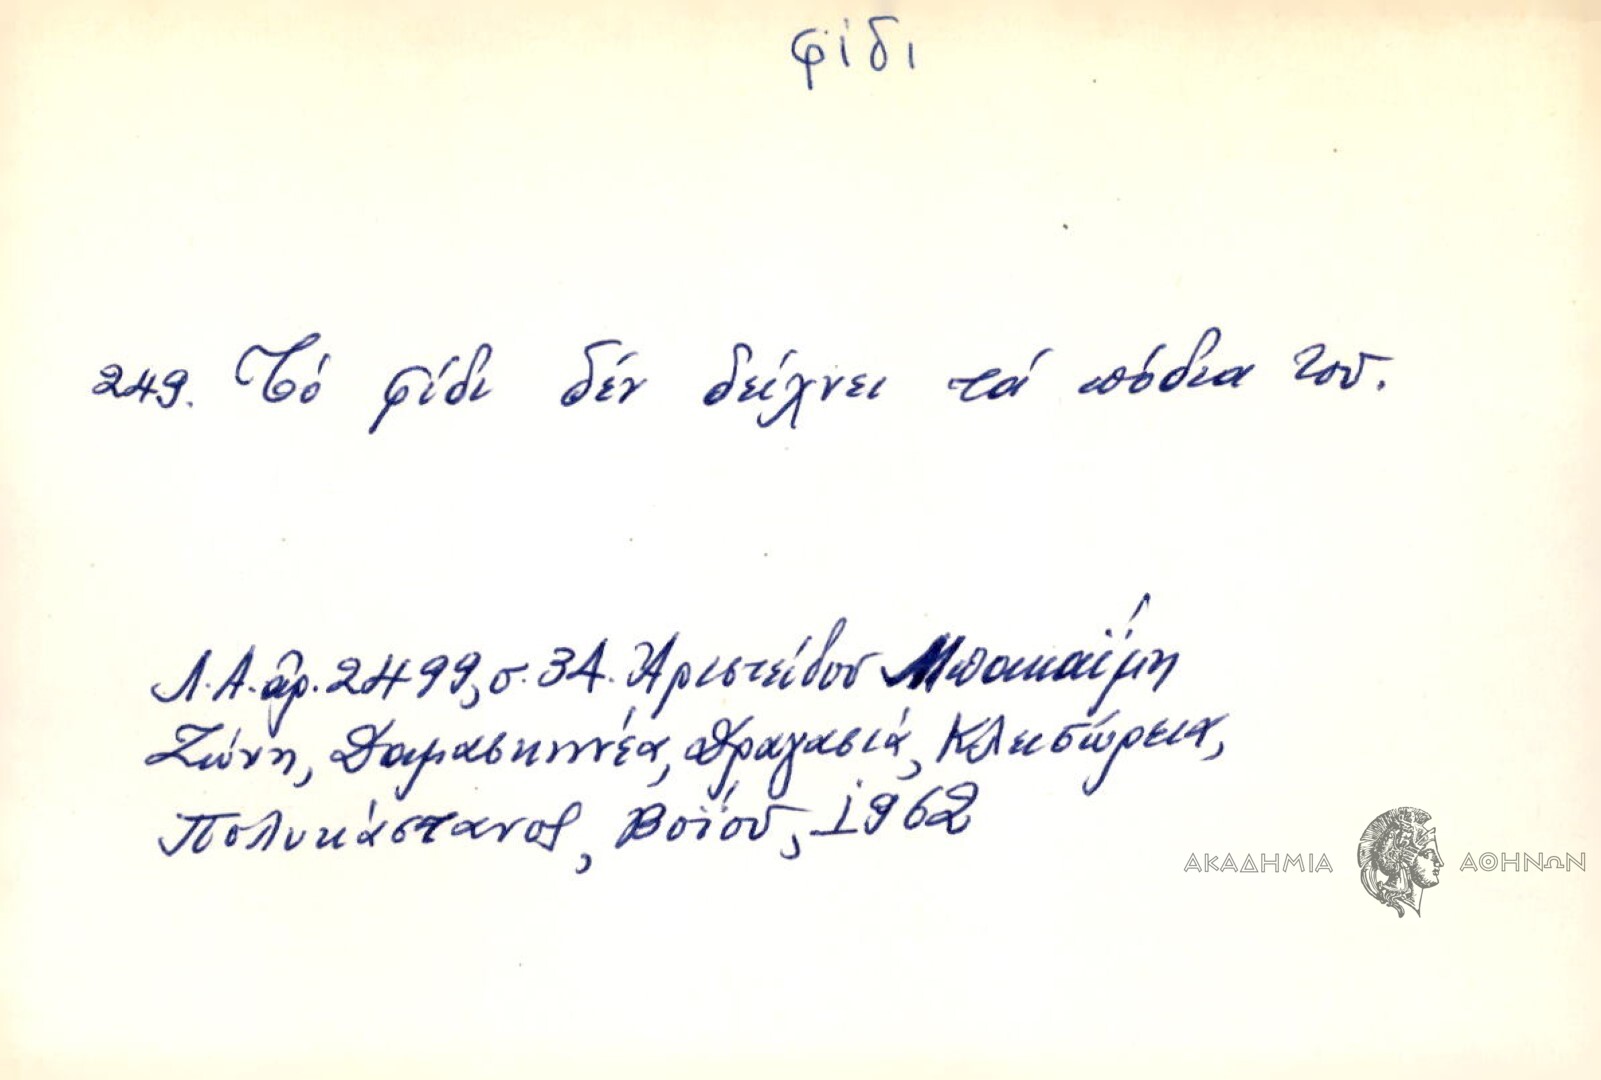 φίδι
249. Τό φίδι δέν δείχνει τά πόδια του.
Λ.Α. ἀρ. 2499, σ. 34. Ἀριστείδου Μπακαΐμη
Ζώνη, Δαμασκηνέα, Δραγασιά, Κλεισώρεια,
Πολυκάστανος, Βοΐου, 1962
ΑΚΑΔΗΜΙΑ ΑΘΗΝΩΝ